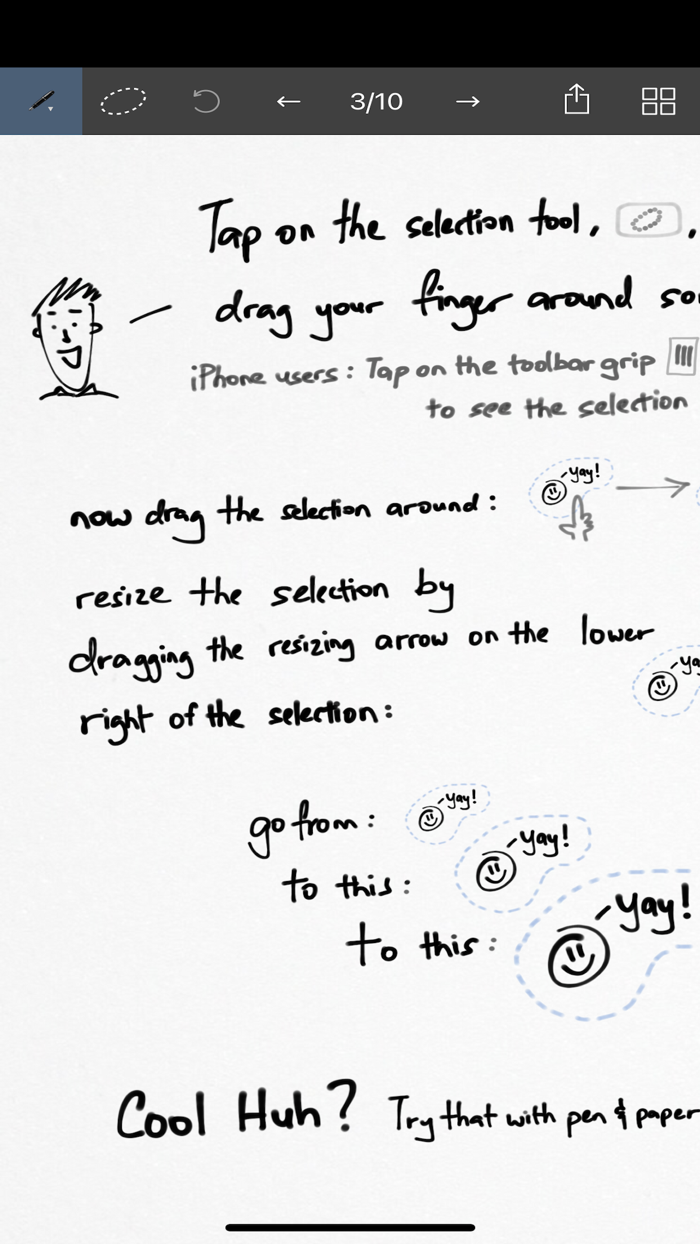 3/10
Tap on the selection tool, .
drag your finger around so
iPhone users: Tap on the toolbar grip
to see the selection
yay!
now drag the selection around:
resize the selection by
dragging the resizing arrow on the lower
ya
right of the selection:
go from: yay!
to this: yay!
to this: yay!
Cool Huh? Try that with pen & paper